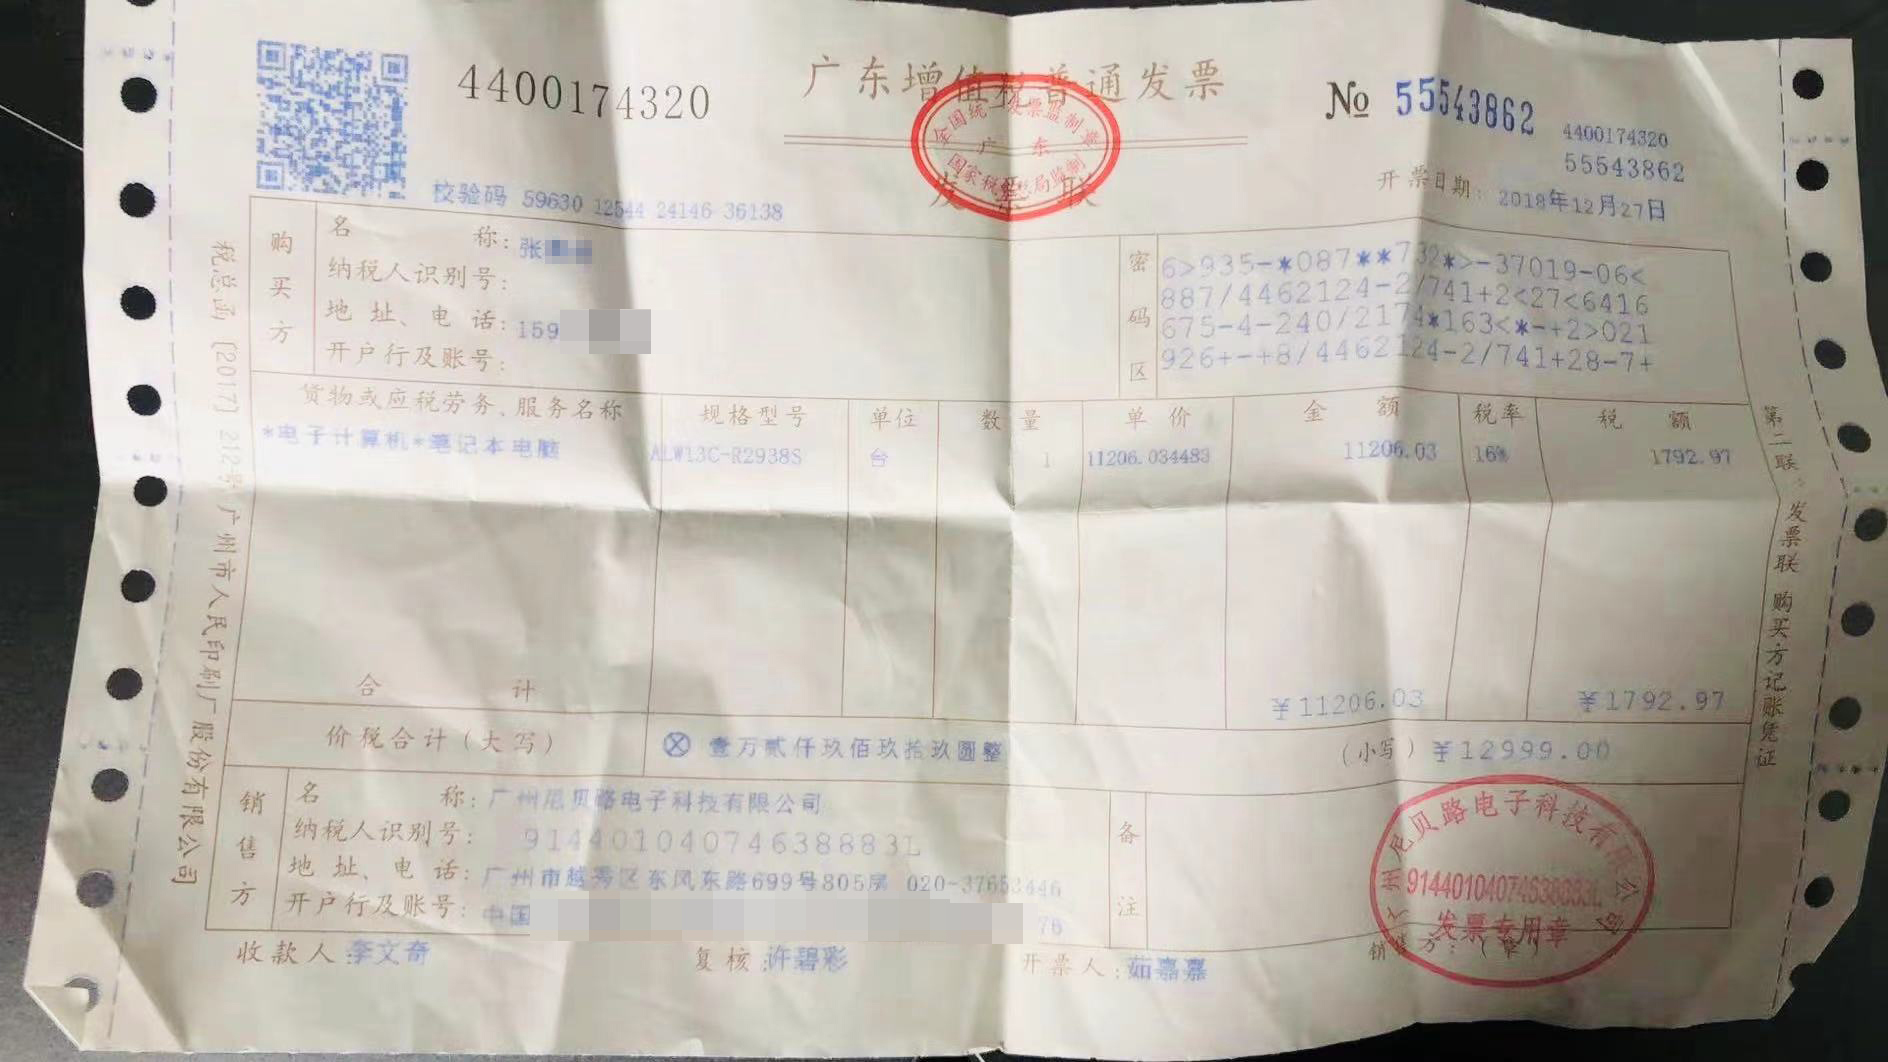 4400174320
广东增值税普通发票
发票联
全国统一发票监制章
广东
国家税务总局监制
No 55543862
4400174320
55543862
校验码 59630 12544 24146 36138
开票日期: 2018年12月27日
购买方
名称: 张
纳税人识别号:
地址、电话: 159
开户行及账号:
密码区
6>935-*087**732*>-37019-06<
887/4462124-2/741+2<27<6416
675-4-240/2174*163<*-+2>021
926+-+8/4462124-2/741+28-7+
货物或应税劳务、服务名称 规格型号 单位 数量 单价 金额 税率 税额
*电子计算机*笔记本电脑 ALW13C-R2938S 台 1 11206.034483 11206.03 16% 1792.97
合计 ¥11206.03 ¥1792.97
价税合计(大写) ⊗ 壹万贰仟玖佰玖拾玖圆整 (小写) ¥12999.00
销售方
名称: 广州尼贝路电子科技有限公司
纳税人识别号: 91440104074638883L
地址、电话: 广州市越秀区东风东路699号805房 020-37653446
开户行及账号: 中国 76
备注
广州尼贝路电子科技有限公司
91440104074638883L
发票专用章
收款人: 李文奇 复核: 许碧彩 开票人: 茹嘉嘉 销售方:(章)
税总函[2017]212号广州市人民印刷厂股份有限公司
第二联:发票联 购买方记账凭证